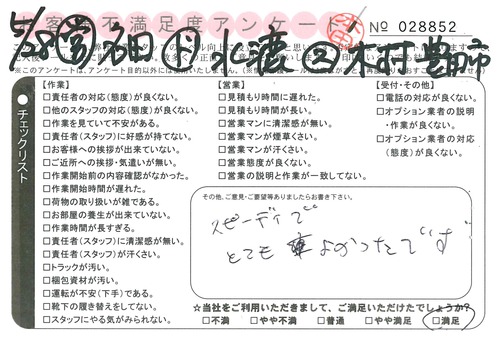 お客様不満足度アンケート
№ 028852
※このアンケートは、アンケート目的以外には使用いたしません。
チェックリスト
【作業】
□責任者の対応(態度)が良くない。
□他のスタッフの対応(態度)が良くない。
□作業を見ていて不安がある。
□責任者(スタッフ)に好感が持てない。
□お客様への挨拶が出来ていない。
□ご近所への挨拶・気遣いが無い。
□作業開始前の内容確認がなかった。
□作業開始時間が遅れた。
□荷物の取り扱いが雑である。
□お部屋の養生が出来ていない。
□作業時間が長すぎる。
□責任者(スタッフ)に清潔感が無い。
□責任者(スタッフ)が汗くさい。
□トラックが汚い。
□梱包資材が汚い。
□運転が不安(下手)である。
□靴下の履き替えをしてない。
□スタッフにやる気がみられない。
【営業】
□見積もり時間に遅れた。
□見積もり時間が長い。
□営業マンに清潔感が無い。
□営業マンが煙草くさい。
□営業マンが汗くさい。
□営業態度が良くない。
□営業の説明と作業が一致してない。
【受付・その他】
□電話の対応が良くない。
□オプション業者の説明
・作業が良くない。
□オプション業者の対応
(態度)が良くない。
その他、ご意見・ご要望等ありましたらお書き下さい。
スピーディで
とても よかったです
☆当社をご利用いただきまして、ご満足いただけたでしょうか?
□不満 □やや不満 □普通 □やや満足 □満足